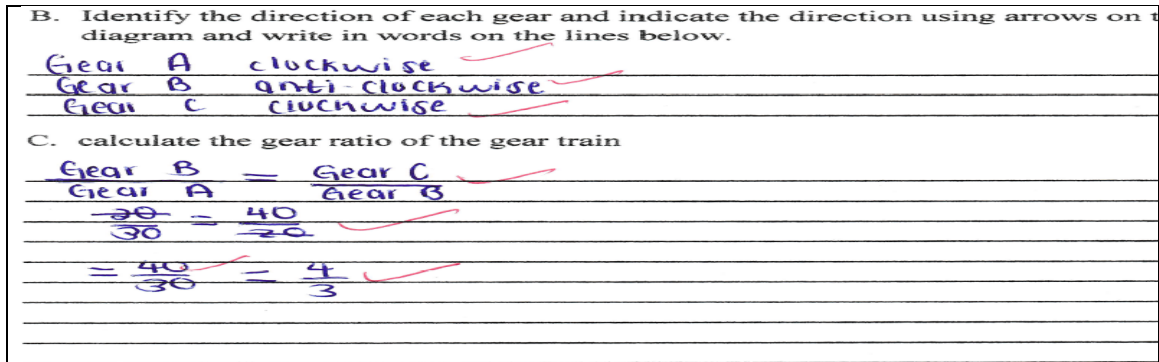 B. Identify the direction of each gear and indicate the direction using arrows on t
diagram and write in words on the lines below.
Gear A clockwise
Gear B anti-clockwise
Gear C clockwise
C. calculate the gear ratio of the gear train
Gear B = Gear C
Gear A Gear B
20 = 40
30 20
= 40 = 4
30 3